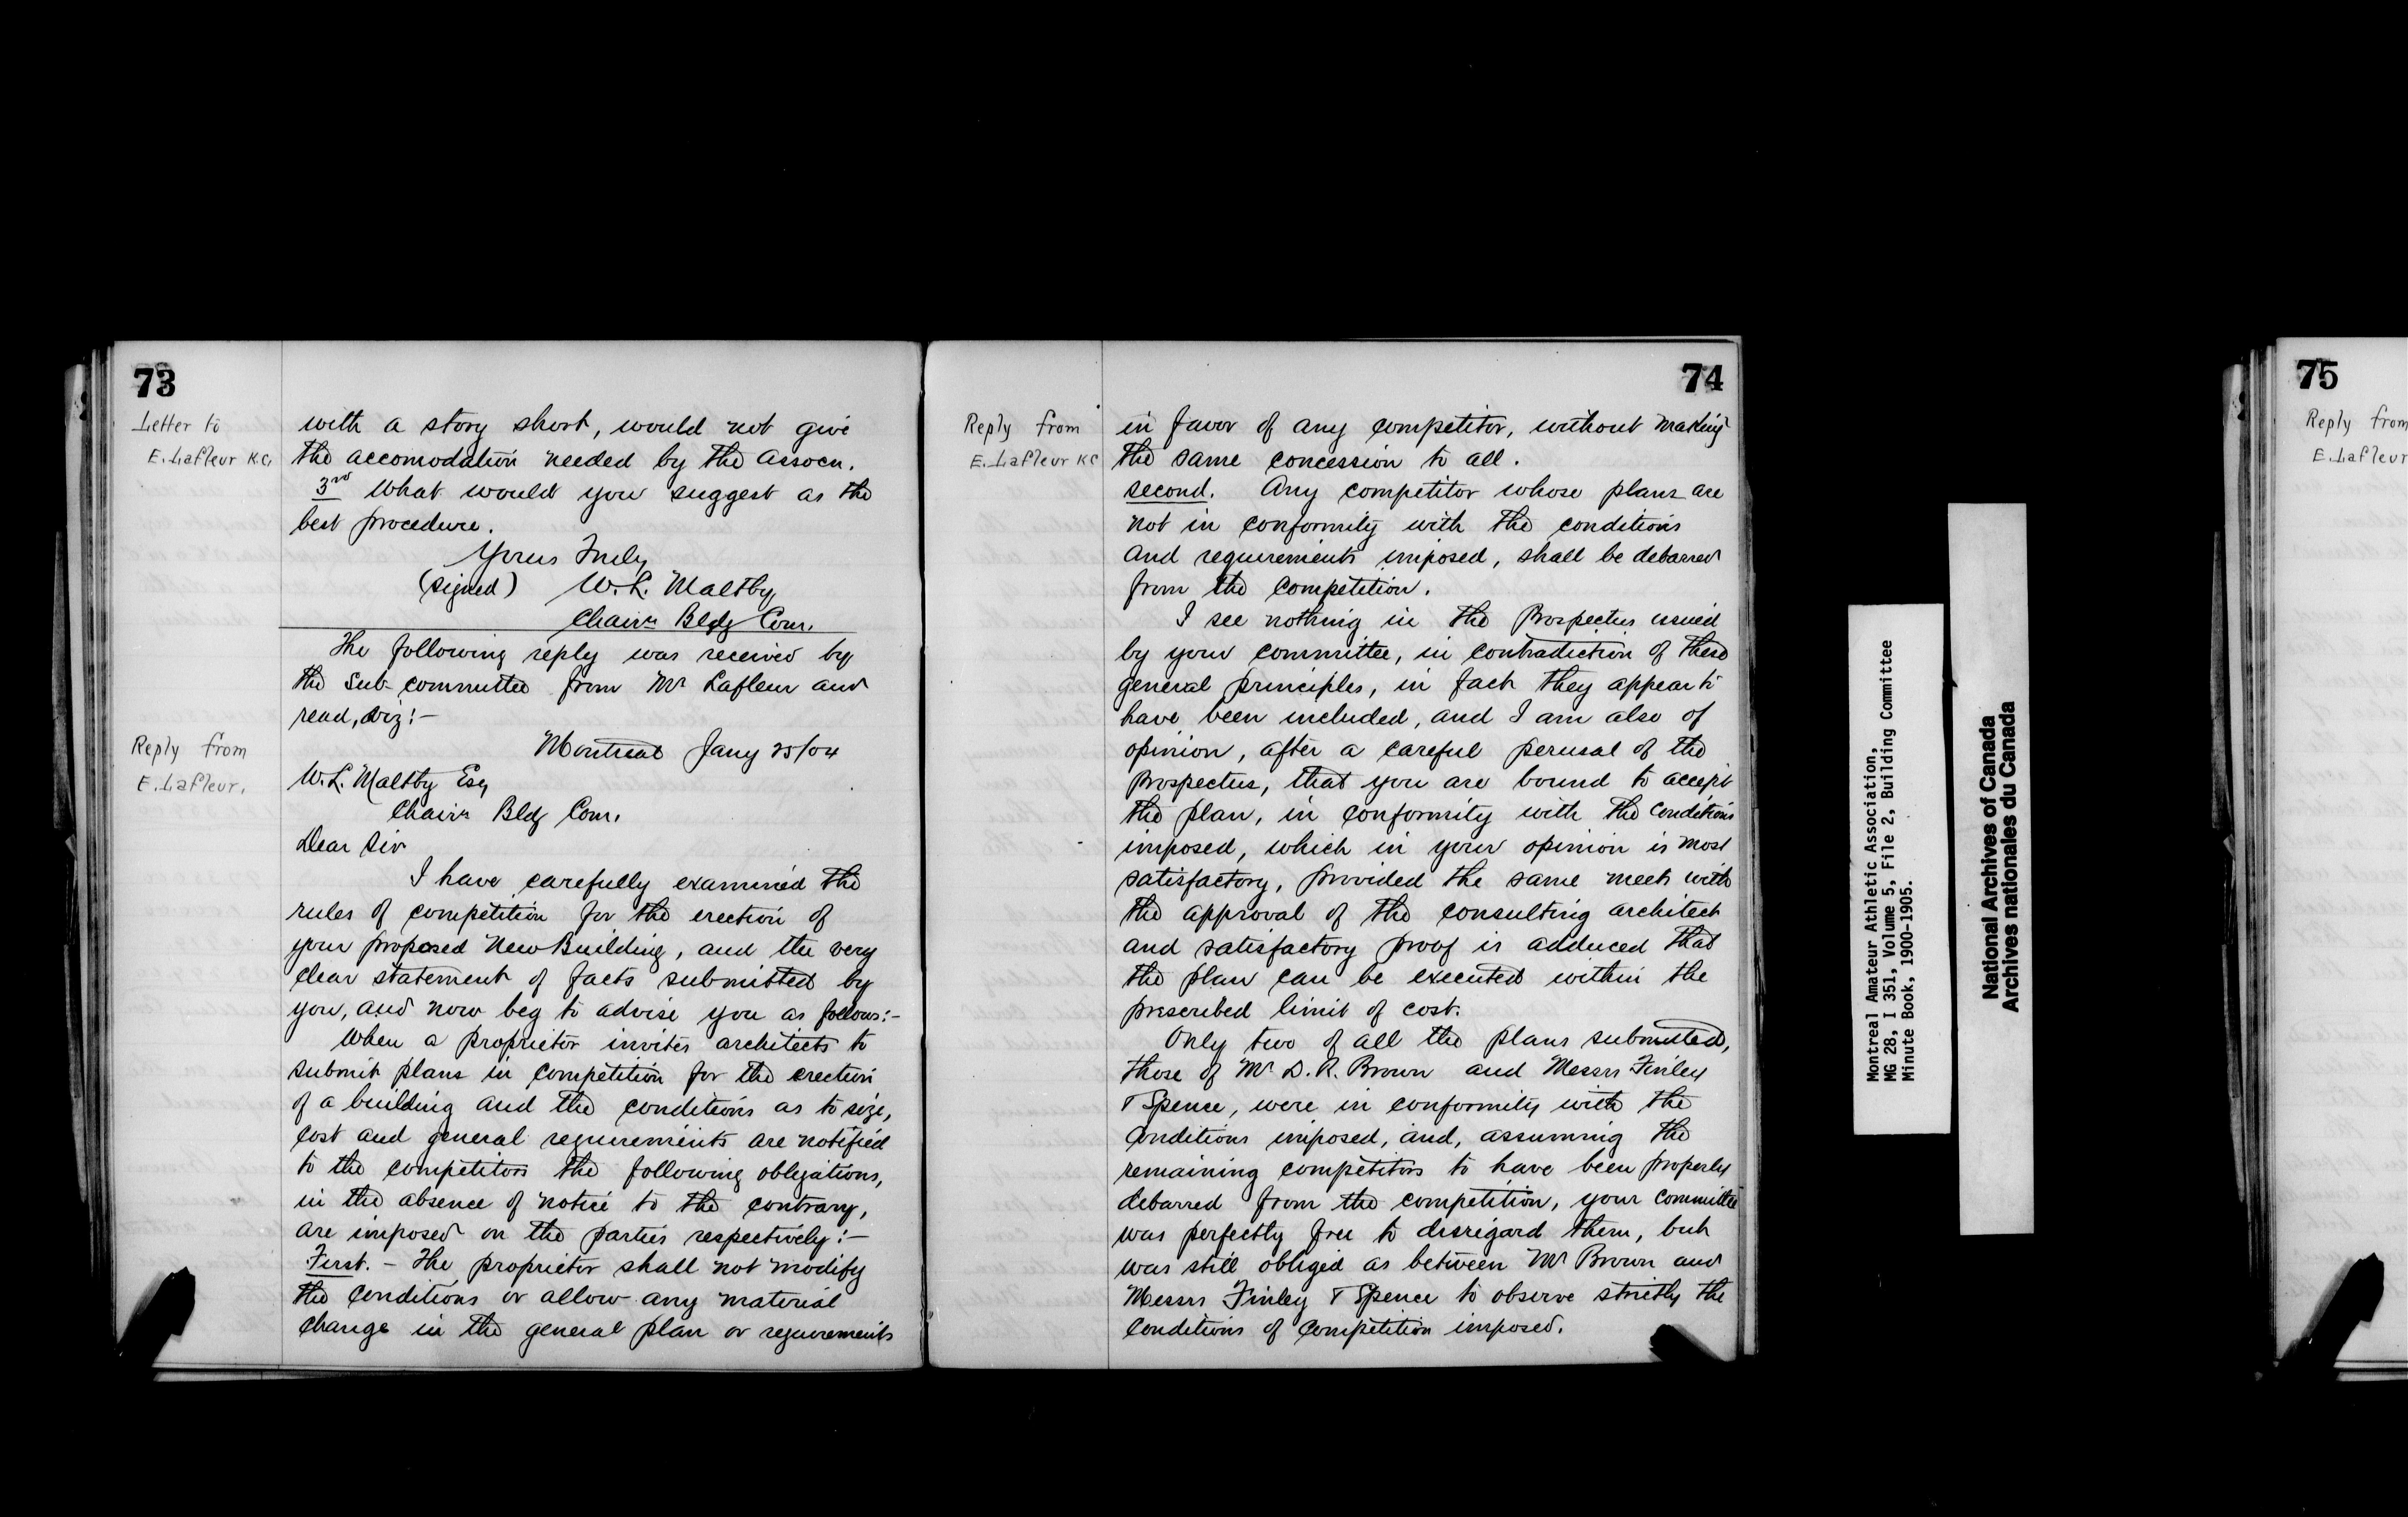 73
Letter to
E. Lafleur K.C.
with a story short, would not give
the accomodation needed by the Assocn.
3rd What would you suggest as the
best procedure.
Yours Truly
(signed) W. L. Maltby
Chairn Bldg Com.
The following reply was received by
the Sub-committee from Mr Lafleur and
read, viz:-
Reply from
E. Lafleur.
Montreal Jany 25/04
W. L. Maltby Esq
Chairn Bldg Com.
Dear Sir
I have carefully examined the
rules of competition for the erection of
your proposed New Building, and the very
clear statement of facts submitted by
you, and now beg to advise you as follows:-
When a proprietor invites architects to
submit plans in competition for the erection
of a building and the conditions as to size,
cost and general requirements are notified
to the competitors the following obligations,
in the absence of notice to the contrary,
are imposed on the parties respectively:-
First. - The proprietor shall not modify
the conditions or allow any material
change in the general plan or requirements
74
Reply from
E. Lafleur KC
in favor of any competitor, without making
the same concession to all.
second. Any competitor whose plans are
not in conformity with the conditions
and requirements imposed, shall be debarred
from the competition.
I see nothing in the Prospectus issued
by your committee, in contradiction of these
general principles, in fact they appear to
have been included, and I am also of
opinion, after a careful perusal of the
prospectus, that you are bound to accept
the plan, in conformity with the conditions
imposed, which in your opinion is most
satisfactory, provided the same meets with
the approval of the consulting architect
and satisfactory proof is adduced that
the plan can be executed within the
prescribed limit of cost.
Only two of all the plans submitted,
those of Mr D. R. Brown and Messrs Finley
& Spence, were in conformity with the
conditions imposed, and, assuming the
remaining competitors to have been properly
debarred from the competition, your committee
was perfectly free to disregard them, but
was still obliged as between Mr Brown and
Messrs Finley & Spence to observe strictly the
conditions of competition imposed.
Montreal Amateur Athletic Association,
MG 28, I 351, Volume 5, File 2, Building Committee
Minute Book, 1900-1905.
National Archives of Canada
Archives nationales du Canada
75
Reply from
E. Lafleur